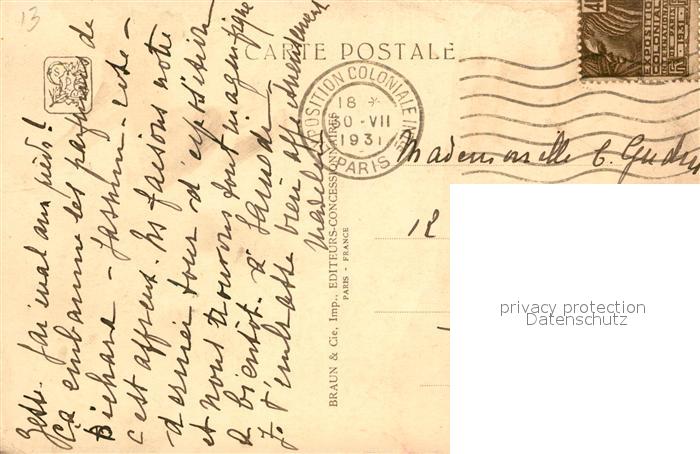 13
CARTE POSTALE
EXPOSITION COLONIALE INT
18
30 - VII
1931
PARIS
Mademoiselle C.
12
BRAUN & Cie, Imp., EDITEURS-CONCESSIONNAIRES
PARIS - FRANCE
Zette. J'ai mal aux pieds!
Ça embaume les parfums de
Bichara - Jasmin -
c'est affreux. Ns faisons notre
dernier tour d'exposition
et nous trouvons tout magnifique
à bientôt.
J. t'embrasse bien affectueusement
Madeleine
privacy protection
Datenschutz